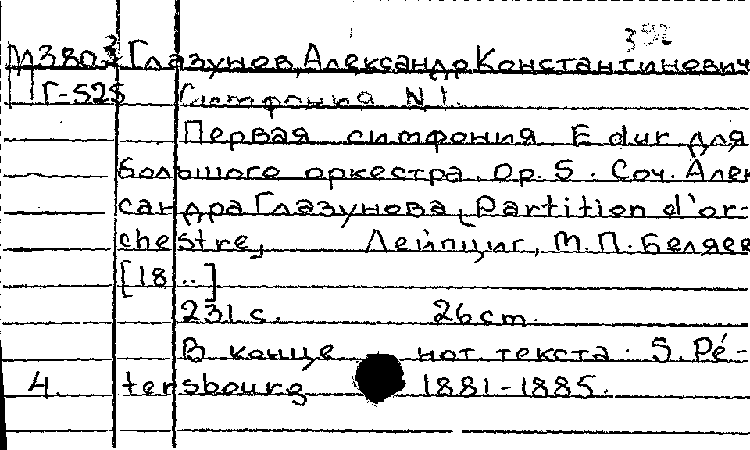 392
М3803 Глазунов, Александр Константинович
Г-525 Симфония N 1.
Первая симфония E dur для
большого оркестра. Op. 5. Соч. Алек
сандра Глазунова, Partition d'or-
chestre, Лейпциг, М.П. Беляев
[18..]
231 с. 26 cm.
В конце нот. текста: S. Pé-
4. tersbourg 1881-1885.